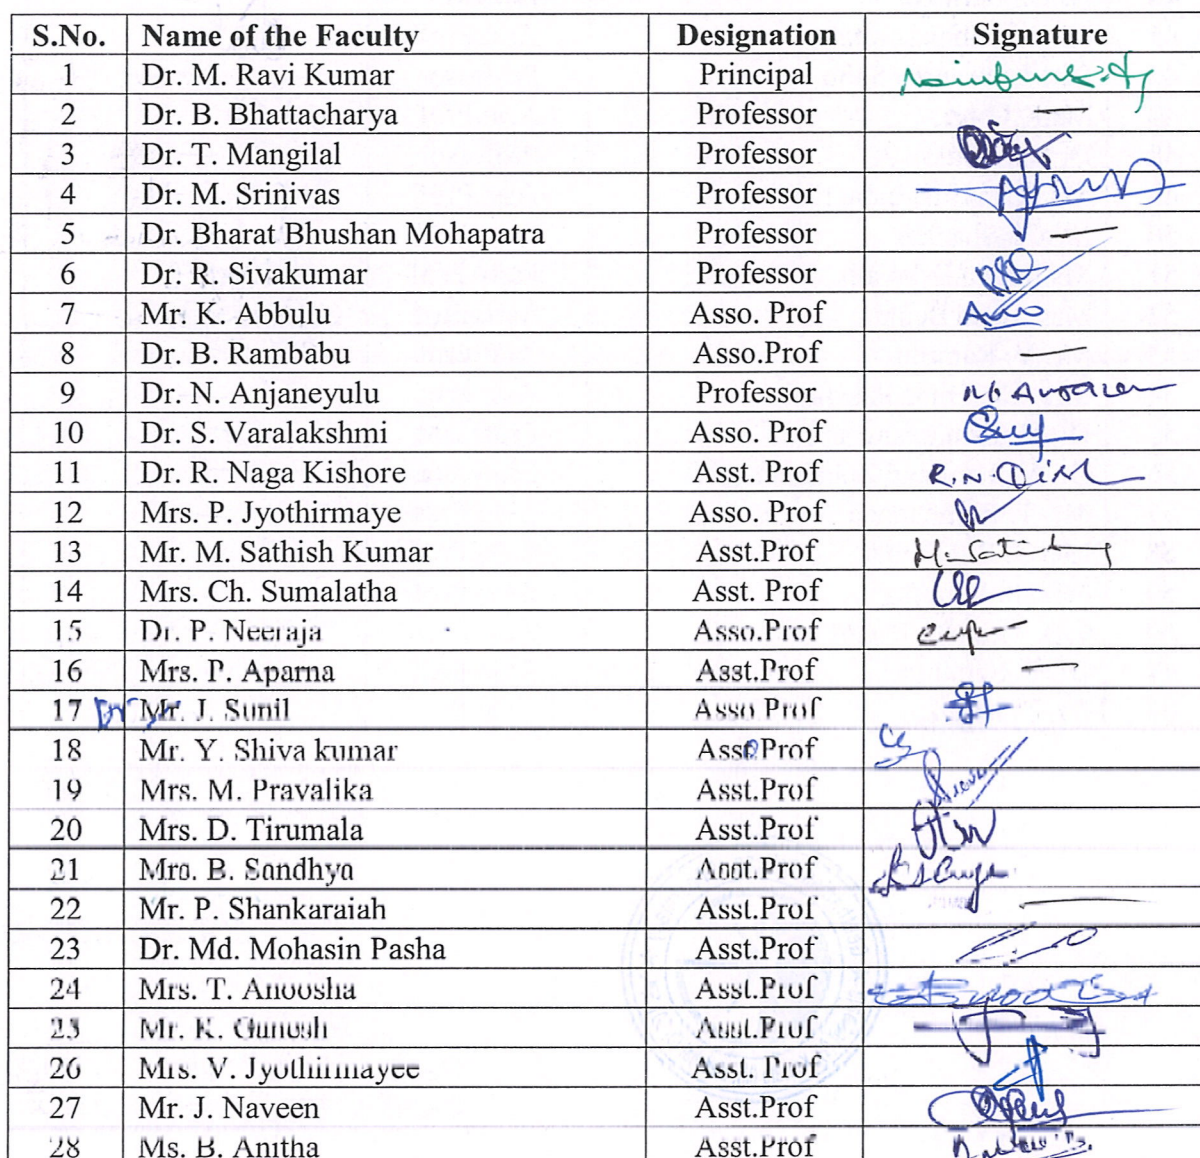 S.No. Name of the Faculty Designation Signature
1 Dr. M. Ravi Kumar Principal
2 Dr. B. Bhattacharya Professor —
3 Dr. T. Mangilal Professor
4 Dr. M. Srinivas Professor
5 Dr. Bharat Bhushan Mohapatra Professor —
6 Dr. R. Sivakumar Professor
7 Mr. K. Abbulu Asso. Prof
8 Dr. B. Rambabu Asso.Prof —
9 Dr. N. Anjaneyulu Professor
10 Dr. S. Varalakshmi Asso. Prof
11 Dr. R. Naga Kishore Asst. Prof
12 Mrs. P. Jyothirmaye Asso. Prof
13 Mr. M. Sathish Kumar Asst.Prof
14 Mrs. Ch. Sumalatha Asst. Prof
15 Dr. P. Neeraja Asso.Prof
16 Mrs. P. Aparna Asst.Prof —
17 Dr Mr. J. Sunil Asso Prof
18 Mr. Y. Shiva kumar Prof
19 Mrs. M. Pravalika Asst.Prof
20 Mrs. D. Tirumala Asst.Prof
21 Mrs. B. Sandhya Asst.Prof
22 Mr. P. Shankaraiah Asst.Prof —
23 Dr. Md. Mohasin Pasha Asst.Prof
24 Mrs. T. Anoosha Asst.Prof
25 Mr. K. Ganesh Asst.Prof
26 Mrs. V. Jyothirmayee Asst. Prof
27 Mr. J. Naveen Asst.Prof
28 Ms. B. Anitha Asst.Prof